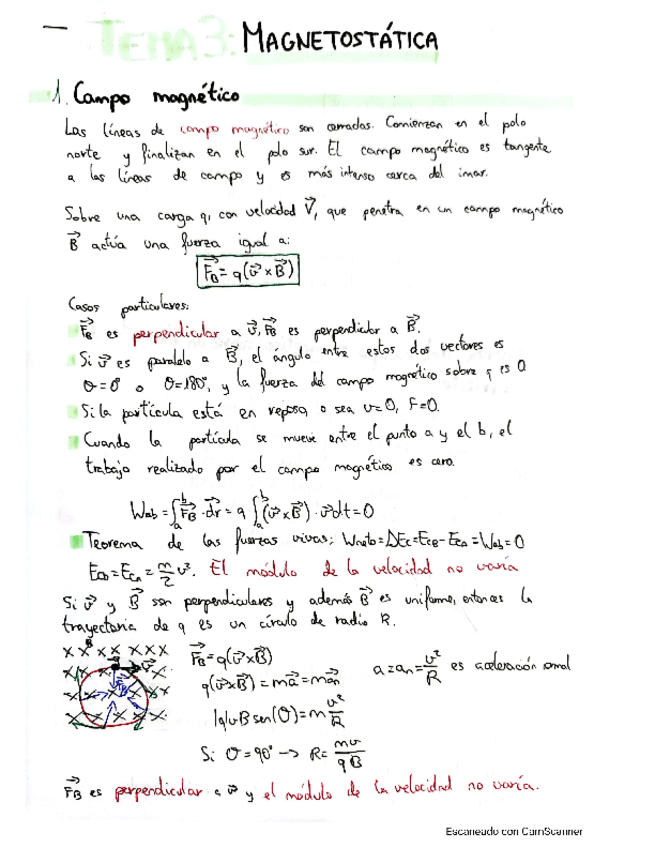 TEMA 3: MAGNETOSTÁTICA
1. Campo magnético
Las líneas de campo magnético son cerradas. Comienzan en el polo
norte y finalizan en el polo sur. El campo magnético es tangente
a las líneas de campo y es más intenso cerca del iman.
Sobre una carga q, con velocidad V⃗, que penetra en un campo magnético
B⃗ actúa una fuerza igual a:
F⃗_B = q(v⃗ × B⃗)
Casos particulares:
F⃗_B es perpendicular a v⃗, F⃗_B es perpendicular a B⃗.
Si v⃗ es paralelo a B⃗, el ángulo entre estos dos vectores es
θ=0° o θ=180°, y la fuerza del campo magnético sobre q es 0.
Si la partícula está en reposo, o sea v=0, F=0.
Cuando la partícula se mueve entre el punto a y el b, el
trabajo realizado por el campo magnético es cero.
W_ab = ∫_a^b F⃗_B · dr⃗ = q ∫_a^b (v⃗ × B⃗) · v⃗dt = 0
Teorema de las fuerzas vivas; W_neto = ΔE_c = E_cB - E_ca = W_ab = 0
E_cb = E_ca = m/2 v². El módulo de la velocidad no varía
Si v⃗ y B⃗ son perpendiculares y además B⃗ es uniforme, entonces la
trayectoria de q es un círculo de radio R.
x x x x x x x
F⃗_B = q(v⃗ × B⃗)
q(v⃗ × B⃗) = ma⃗ = ma⃗n
a = an = v²/R es aceleración normal
|q|vB sen(θ) = m v²/R
Si θ = 90° -> R = mv/qB
F⃗_B es perpendicular a v⃗ y el módulo de la velocidad no varía.
Escaneado con CamScanner